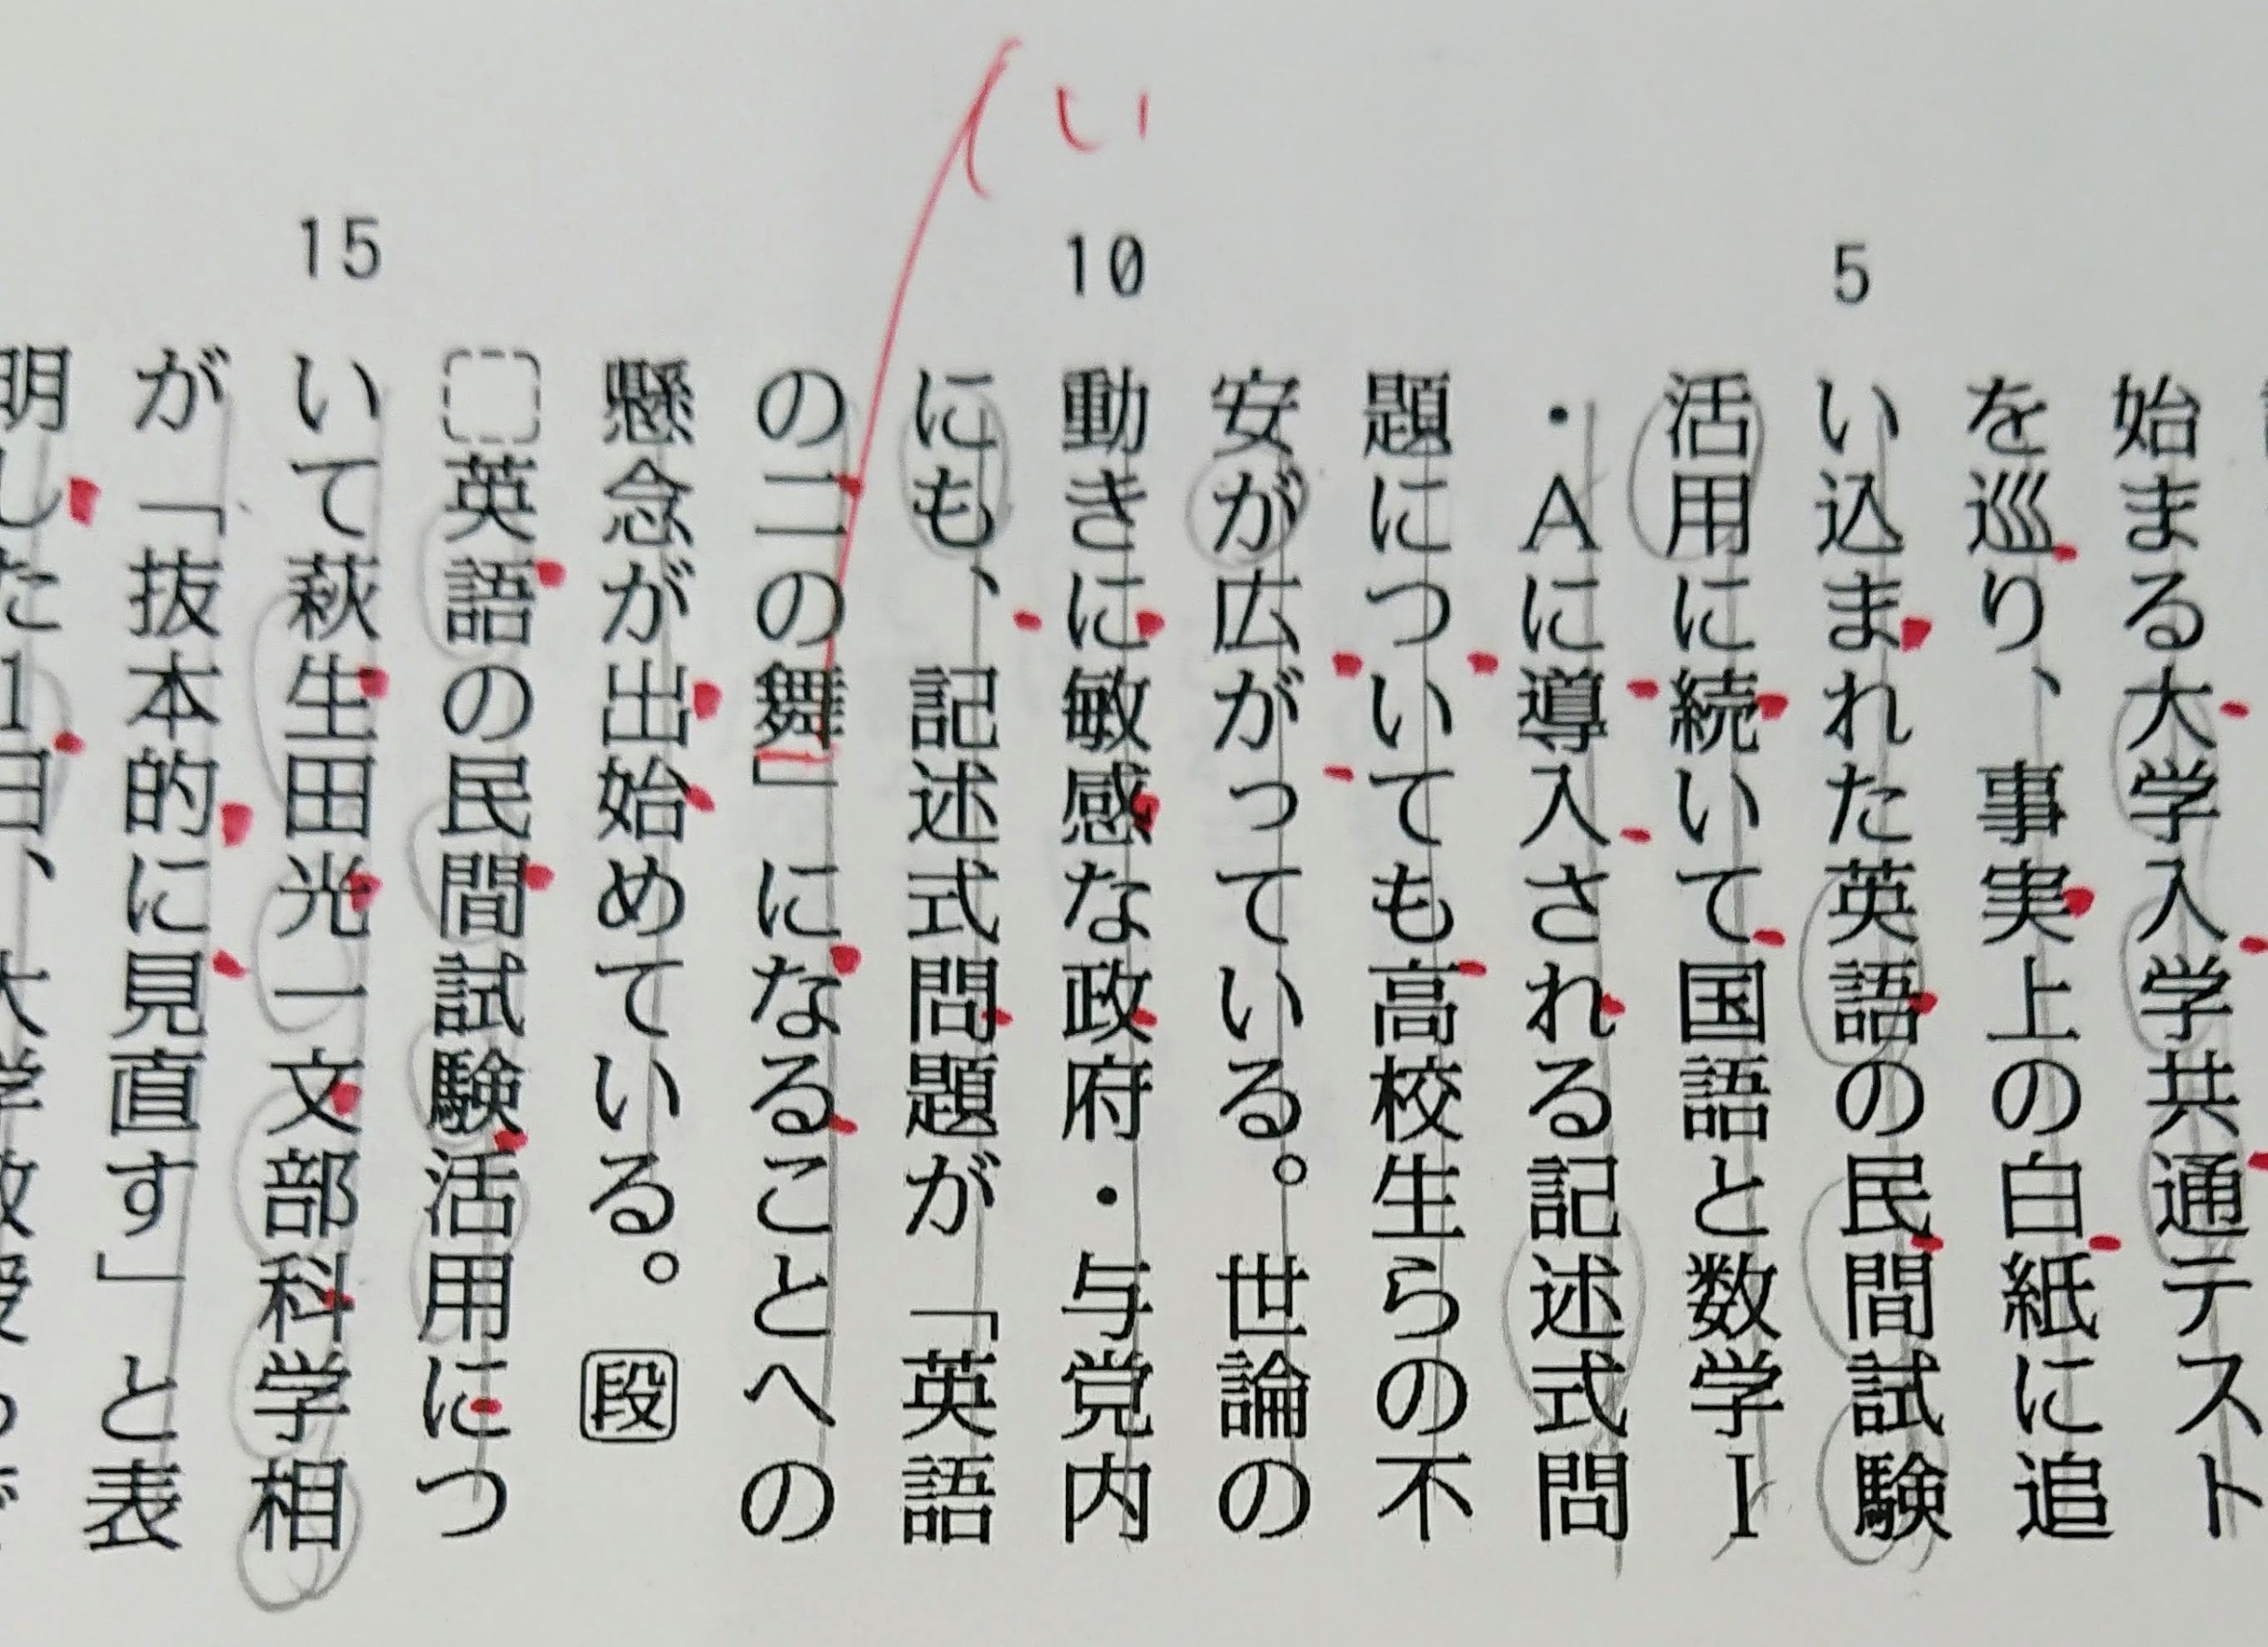 始まる大学入学共通テスト
を巡り、事実上の白紙に追
い込まれた英語の民間試験
活用に続いて国語と数学Ⅰ
・Aに導入される記述式問
題についても高校生らの不
安が広がっている。世論の
動きに敏感な政府・与党内
にも、記述式問題が「英語
の二の舞」になることへの
懸念が出始めている。段
英語の民間試験活用につ
いて萩生田光一文部科学相
が「抜本的に見直す」と表
明した1日、大学教授らで
5
10
15
い